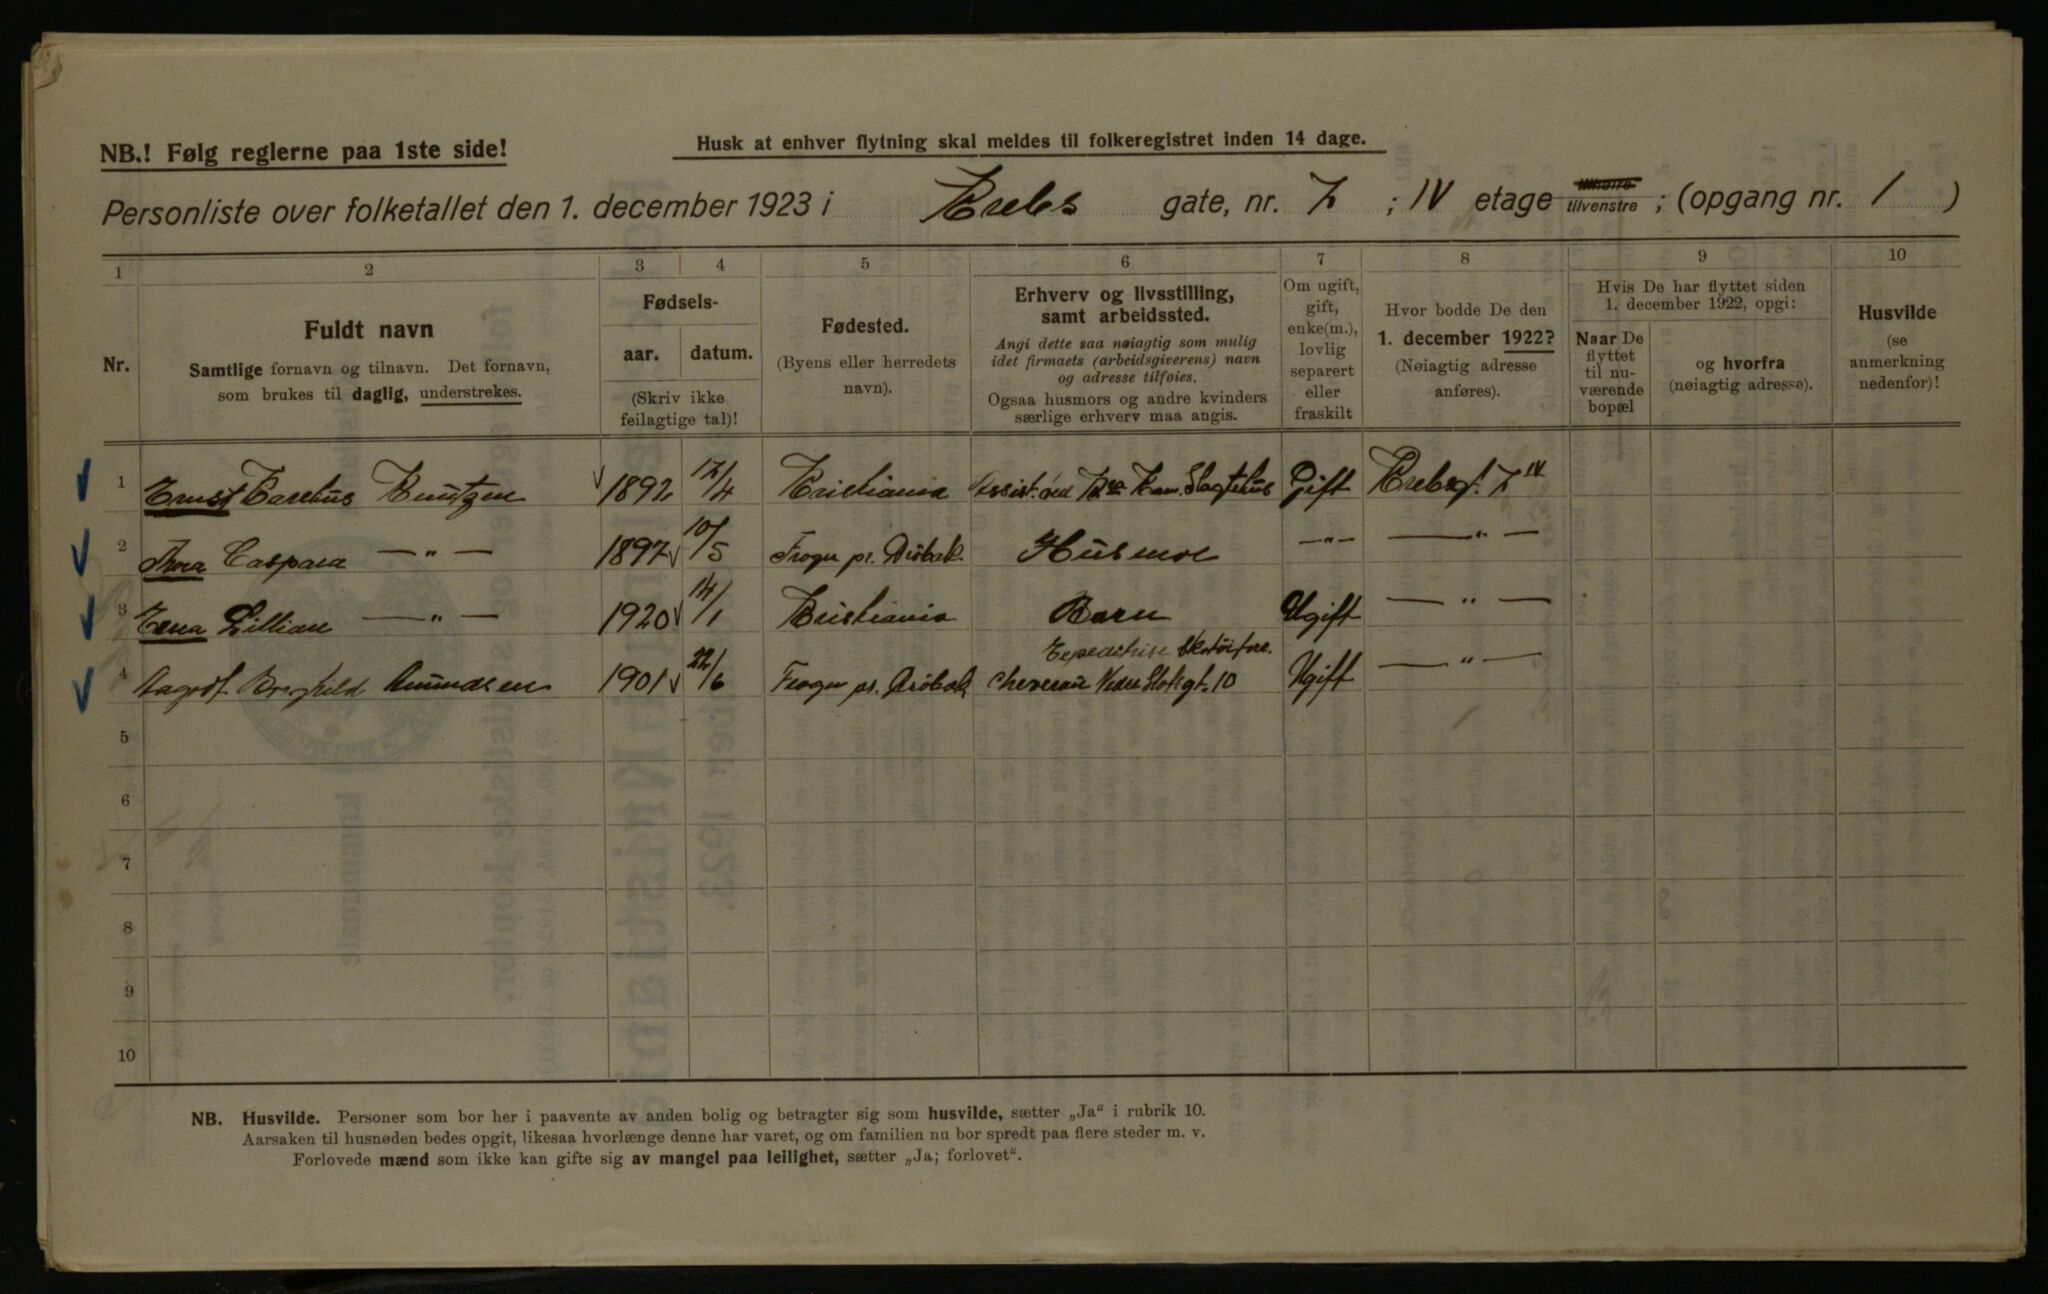 NB.! Følg reglerne paa 1ste side!
Husk at enhver flytning skal meldes til folkeregistret inden 14 dage.
Personliste over folketallet den 1. december 1923 i Krebs gate, nr. 7 ; IV etage tilhøire tilvenstre ; (opgang nr. 1 )
1 2 3 4 5 6 7 8 9 10
Nr.
Fuldt navn
Samtlige fornavn og tilnavn. Det fornavn,
som brukes til daglig, understrekes.
Fødsels-
aar. datum.
(Skriv ikke
feilagtige tal)!
Fødested.
(Byens eller herredets
navn).
Erhverv og livsstilling,
samt arbeidssted.
Angi dette saa nøiagtig som mulig
idet firmaets (arbeidsgiverens) navn
og adresse tilføies.
Ogsaa husmors og andre kvinders
særlige erhverv maa angis.
Om ugift,
gift,
enke(m.),
lovlig
separert
eller
fraskilt
Hvor bodde De den
1. december 1922?
(Nøiagtig adresse
anføres).
Hvis De har flyttet siden
1. december 1922, opgi:
Naar De
flyttet
til nu-
værende
bopæl
og hvorfra
(nøiagtig adresse).
Husvilde
(se
anmerkning
nedenfor)!
1 Ernst Knutzen 1892 12/4 Kristiania Assist. ved Kom. Slagtehus Gift Krebsgt. 7 IV
2 Thora Caspara — „ — 1897 10/5 Frogn pr. Drøbak Husmor — „ — — „ —
3 Erna Lillian — „ — 1920 14/1 Kristiania Barn Ugift — „ —
Expeditrise Skotøiforr.
4 Dagrof Borghild Amundsen 1901 22/6 Frogn pr. Drøbak Nedre Slotsgt. 10 Ugift — „ —
5
6
7
8
9
10
NB. Husvilde. Personer som bor her i paavente av anden bolig og betragter sig som husvilde, sætter „Ja“ i rubrik 10.
Aarsaken til husnøden bedes opgit, likesaa hvorlænge denne har varet, og om familien nu bor spredt paa flere steder m. v.
Forlovede mænd som ikke kan gifte sig av mangel paa leilighet, sætter „Ja; forlovet“.